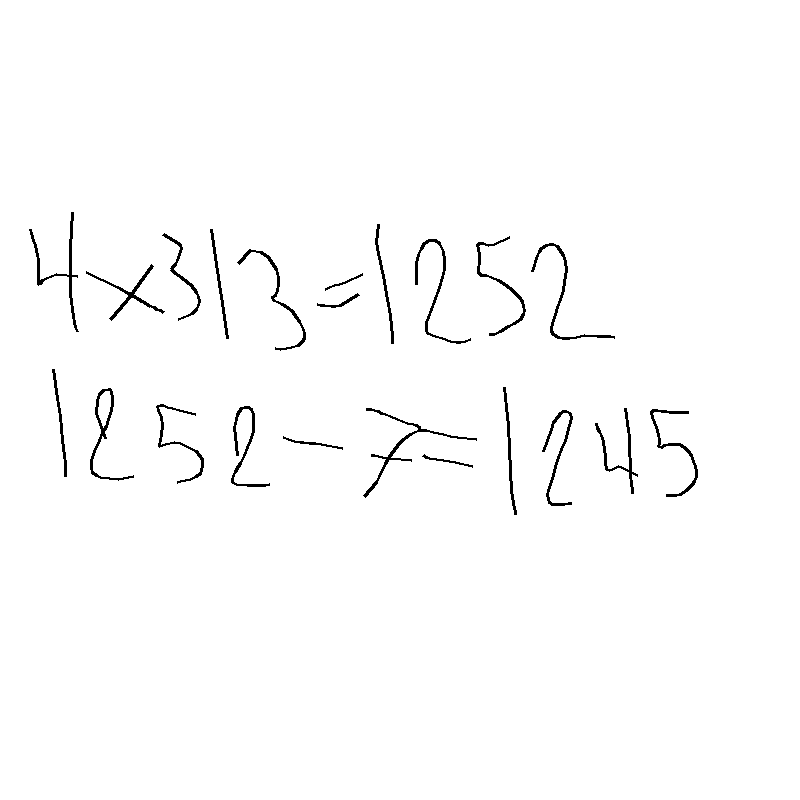 4×313=1252
1252-7=1245